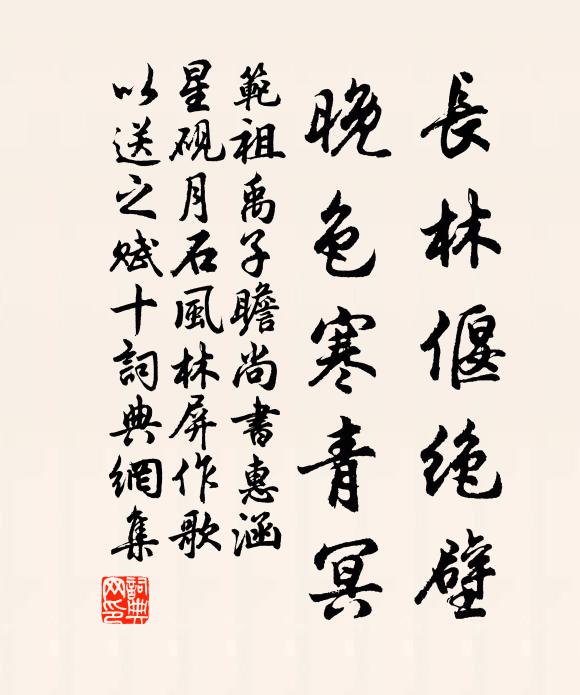 長林偃絶壁
晚色寒青冥
範祖禹子瞻尚書惠涵
星硯月石風林屏作歌
以送之賦十詞典網集
詞典網印